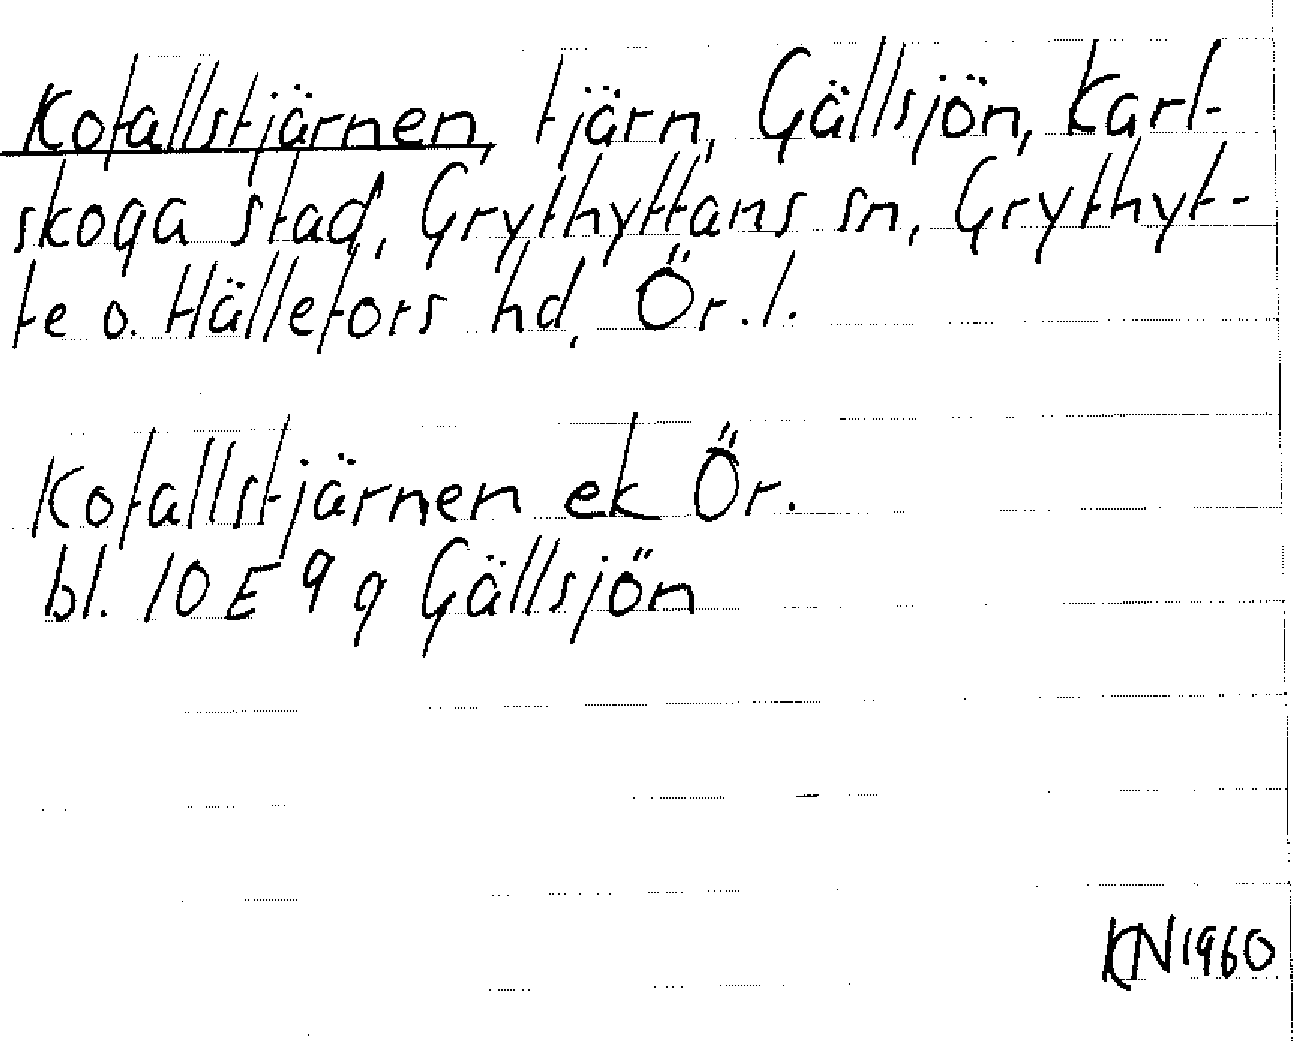 Kofallstjärnen, tjärn, Gällsjön, Karl-
skoga stad, Grythyttans sn, Grythyt-
te o. Hällefors hd, Ör. l.
Kofallstjärnen ek Ör.
bl. 10 E 9 g Gällsjön
KN 1960